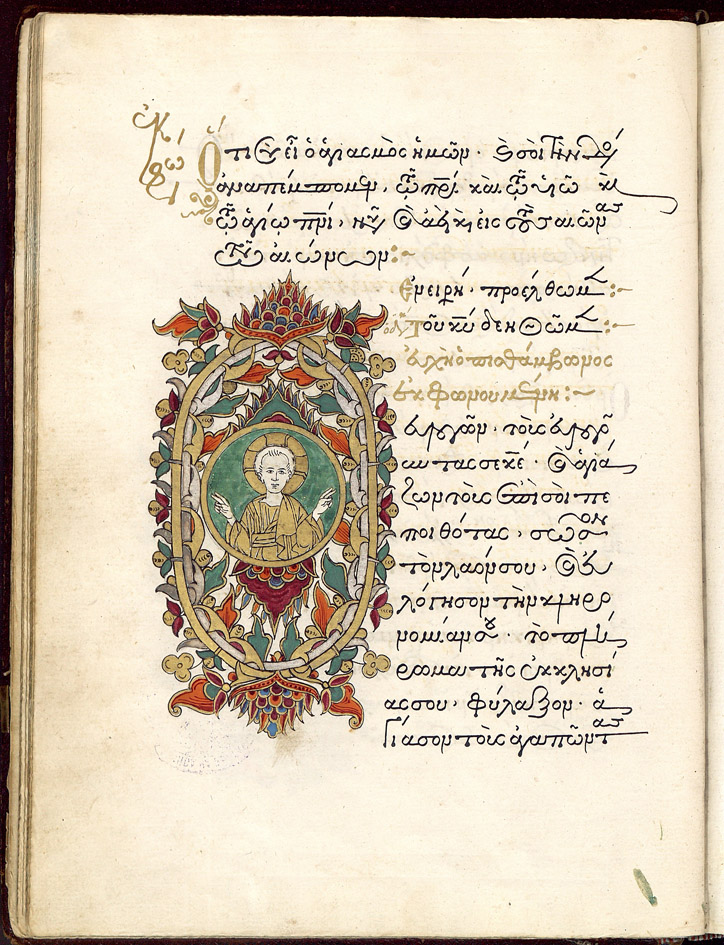 Ὅτι σὺ εἶ ὁ ἁγιασμὸς ἡμῶν· καὶ σοὶ τὴν δό
ἀναπέμπομεν, τῷ πρὶ· καὶ τῷ υἱῷ κ
τῷ ἁγίῳ πνι, νῦν καὶ ἀεὶ κ εἰς τοὺς αἰῶνας
τῶν αἰώνων:~
Ἐν εἰρή· προέλθωμ:~
τοῦ κυ δεηθῶμ:~
εὐχὴ ὀπισθάμβωνος
ἐκφωνουμένη:~
εὐλογῶν τοὺς εὐλογοῦ
ντας σε κε· καὶ ἁγιά
ζων τοὺς ἐπὶ σοὶ πε
ποιθότας, σῶσον
τὸν λαόν σου, καὶ εὐ
λόγησον τὴν κληρο
νομίαν σου· τὸ πλή
ρωμα τῆς ἐκκλησί
ας σου, φύλαξον· ἁ
γίασον τοὺς ἀγαπῶντας